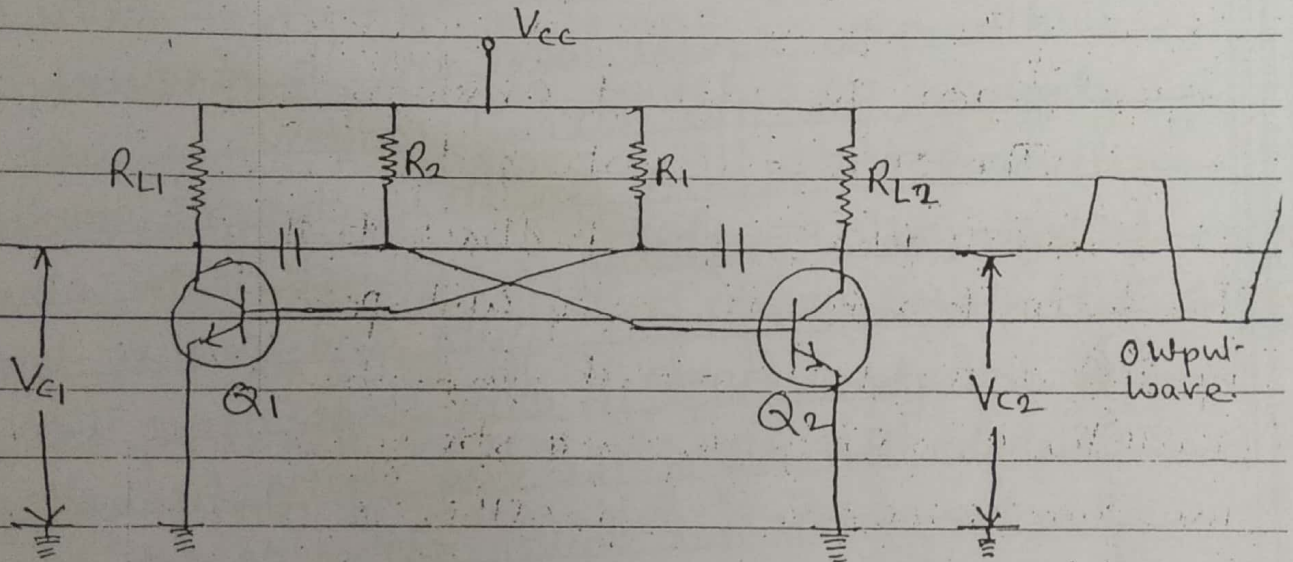 Vcc
RL1
R2
R1
RL2
VC1
Q1
Q2
VC2
Output
wave.